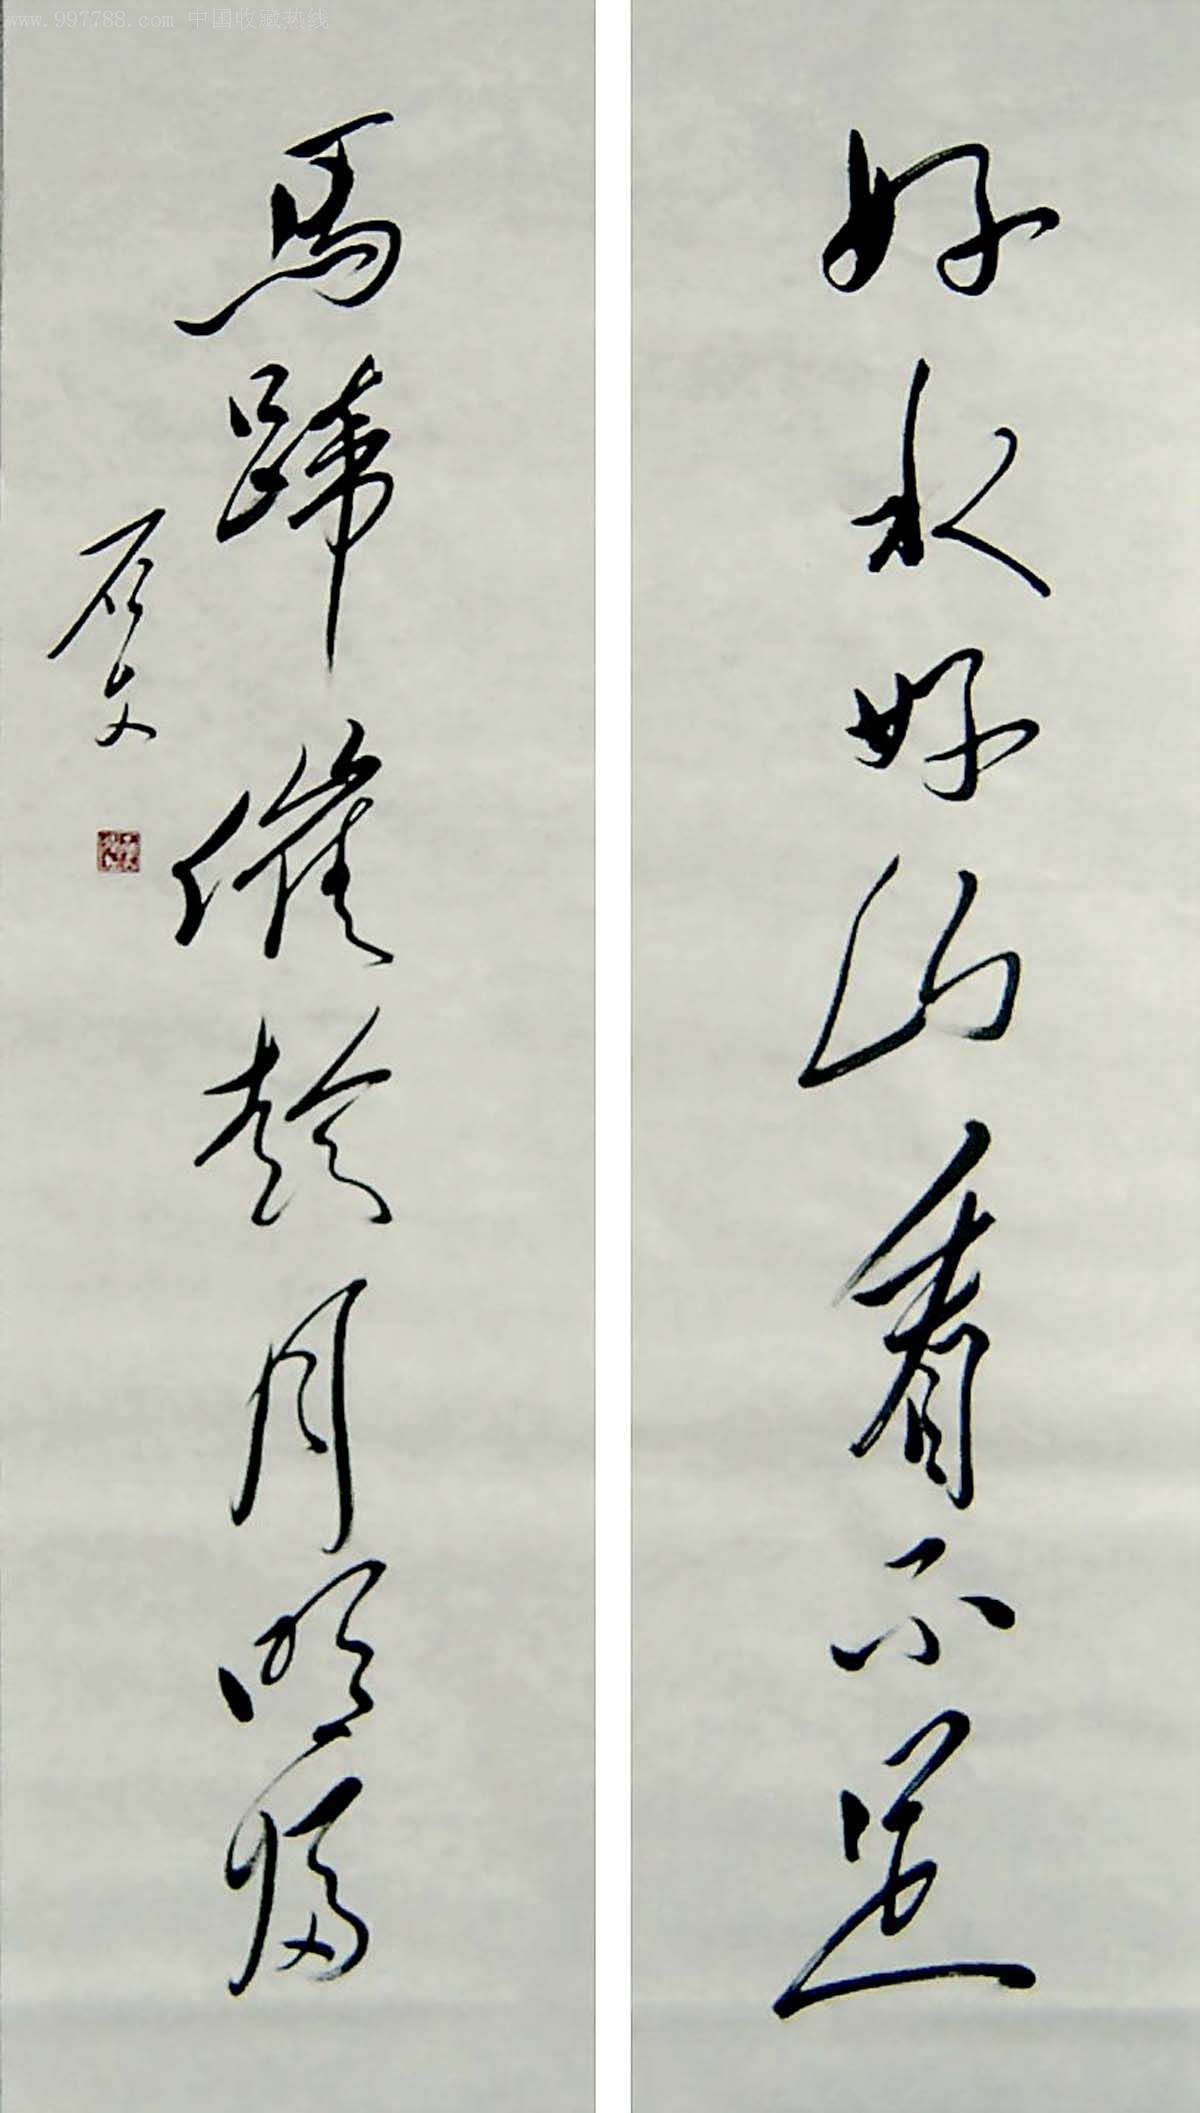 www.997788.com 中国收藏热线
好水好山看不足
馬蹄催趁月明歸